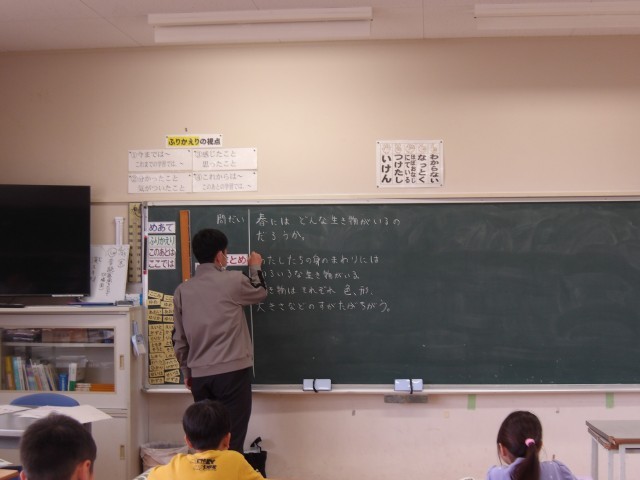 ふりかえりの視点
①今までは～
これまでの学習では、～
③感じたこと
思ったこと
②分かったこと
気がついたこと
④これからは～
このあとの学習では、～
わからない
なっとく
はほおなじ
にている
つけたし
いけん
めあて
ふりかえり
このあとは
ここでは
問だい
春には どんな生き物がいるの
だろうか。
まとめ
たしたちの身のまわりには
いろいろな生き物がいる。
き物は それぞれ 色、形、
大きさなどのすがたがちがう。